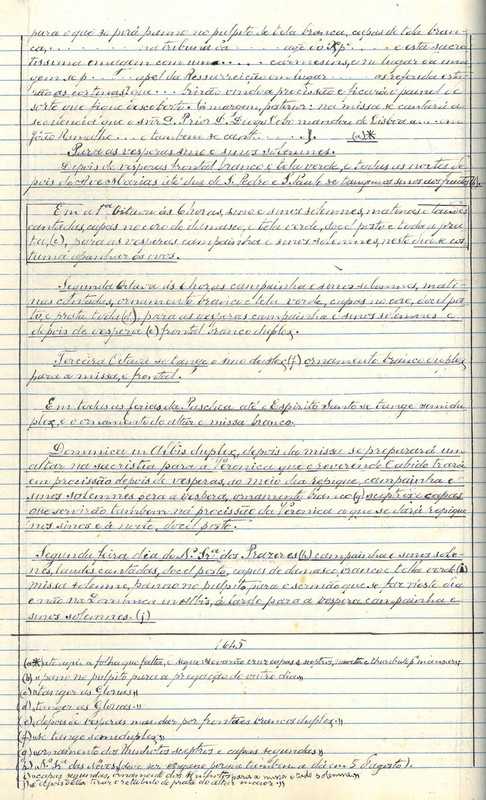 para o que se porá panno no pulpito de tela branca, capas de tela bran-
ca, . . . . . na tribuna da . . . . . e esta sacra
tissima imagem com uma . . . . carmesim, e no lugar da ima
gem se p . . . apel da Ressurreição em lugar . . . as
. . . virão vindo a procissão e ficará o painel de
sorte que fique descoberto. a imagem, . na missa se cantará a
sequencia que o snr D. Prior D. Diogo Lobo mandou de Lisboa a . . . em
João Ramalho . . . e tambem se cant. . . . ). (a)*
Para as vesperas sino e sinos solemnes.
Depois de vesperas frontal branco e tela verde, e todas as noites de
pois do Ave Marias até dia de S. Pedro e S. Paulo se tangem os sinos aos fructos (b).
Em a 1ª Oitava ás 6 horas, sino e sinos solemnes, matinas e laudes
cantadas, capas no coro de damasco, e tela verde, docel posto e toda a pra
ta, (c), para as vesperas campainha e sinos solemnes, neste dia se cos
tuma apanhar os ovos.
Segunda Oitava ás 6 horas campainha e sinos solemnes, mati-
nas cantadas, ornamento branco e tela verde, capas no coro, docel pos
to, e prata toda (d), para as vesperas campainha e sinos solemnes e
depois de vespera (e) frontal branco duplex.
Terceira Oitava se tange o sino duplex (f) ornamento branco duplex
para a missa, e frontal.
Em todas as ferias da Paschoa até o Espirito Santo se tange semidu
plex, e o ornamento do altar e missa branco.
Dominica in Albis duplex, depois da missa se preparará um
altar na sacristia para a Veronica que o reverendo Cabido trará
em procissão depois de vesperas, ao meio dia repique, campainha e
sinos solemnes pera a vespora, ornamento branco (g) sceptros e capas
que servirão tambem na procissão da Veronica a que se dará repique
nos sinos e á noite, docel posto.
Segunda feira dia de N.ª Sr.ª dos Prazeres (h) campainha e sinos sole-
nes, laudes cantadas, docel posto, capas de damasco branco e tela verde (i)
missa solemne, panno no pulpito, para o sermão que se faz neste dia
e não na Dominica in Albis, á tarde para a vespera campainha e
sinos solemnes. (j)
1645
(a*) até aqui a folha que falta, e segue: levarão cruz capas e sceptros, naveta e thuribulo
(b) "pano no pulpito para a pregação do outro dia"
(c) "tanger as Glorias"
(d) tanger as Glorias "
(e) "depois de vesperas mandar por frontaes brancos duplex"
(f) "se tange semiduplex"
(g) "ornamento dos sceptros e capas segundas"
(h) N.ª Sr.ª das Neves (deve ser engano porem tambem a dia em 5 d'agosto).
(i) "capas segundas, ornamento dos para a missa e tudo solemne"
(j) "e depois della tirar o retabulo de prata do altar maior"